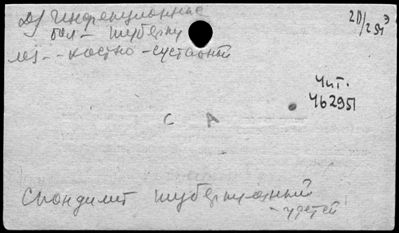 Д/ Инфекционные
бол- туберку
лез - костно-суставный
2D/291 Э
Чит.
46295
С А
Спондилит туберкулезный
- у детей